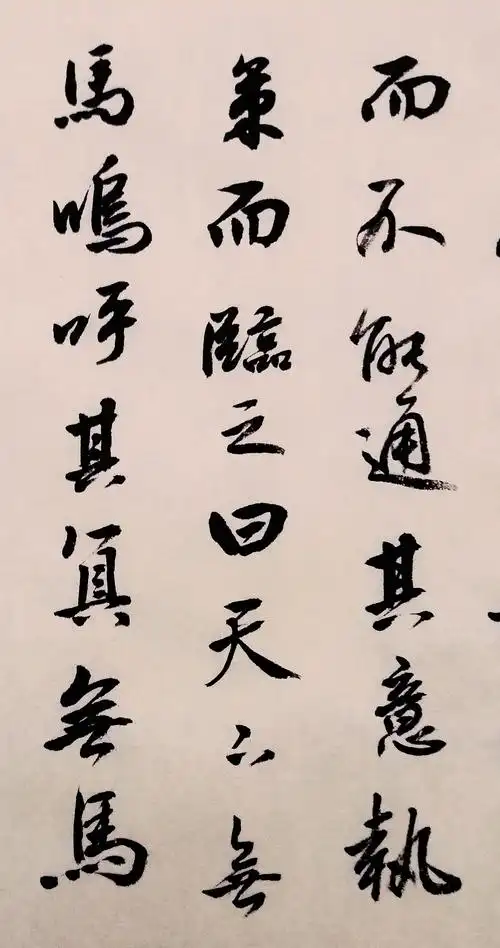 而不能通其意執
策而臨之曰天下無
馬嗚呼其真無馬